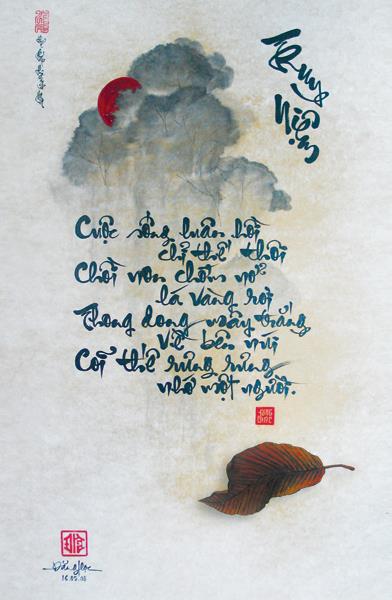 Truy
Niệm
Cuộc sống luân hồi
chỉ thế thôi
Chồi non chớm nở
lá vàng rơi
Thong dong mây trắng
về bên núi
Cõi thế rưng rưng
nhớ một người.